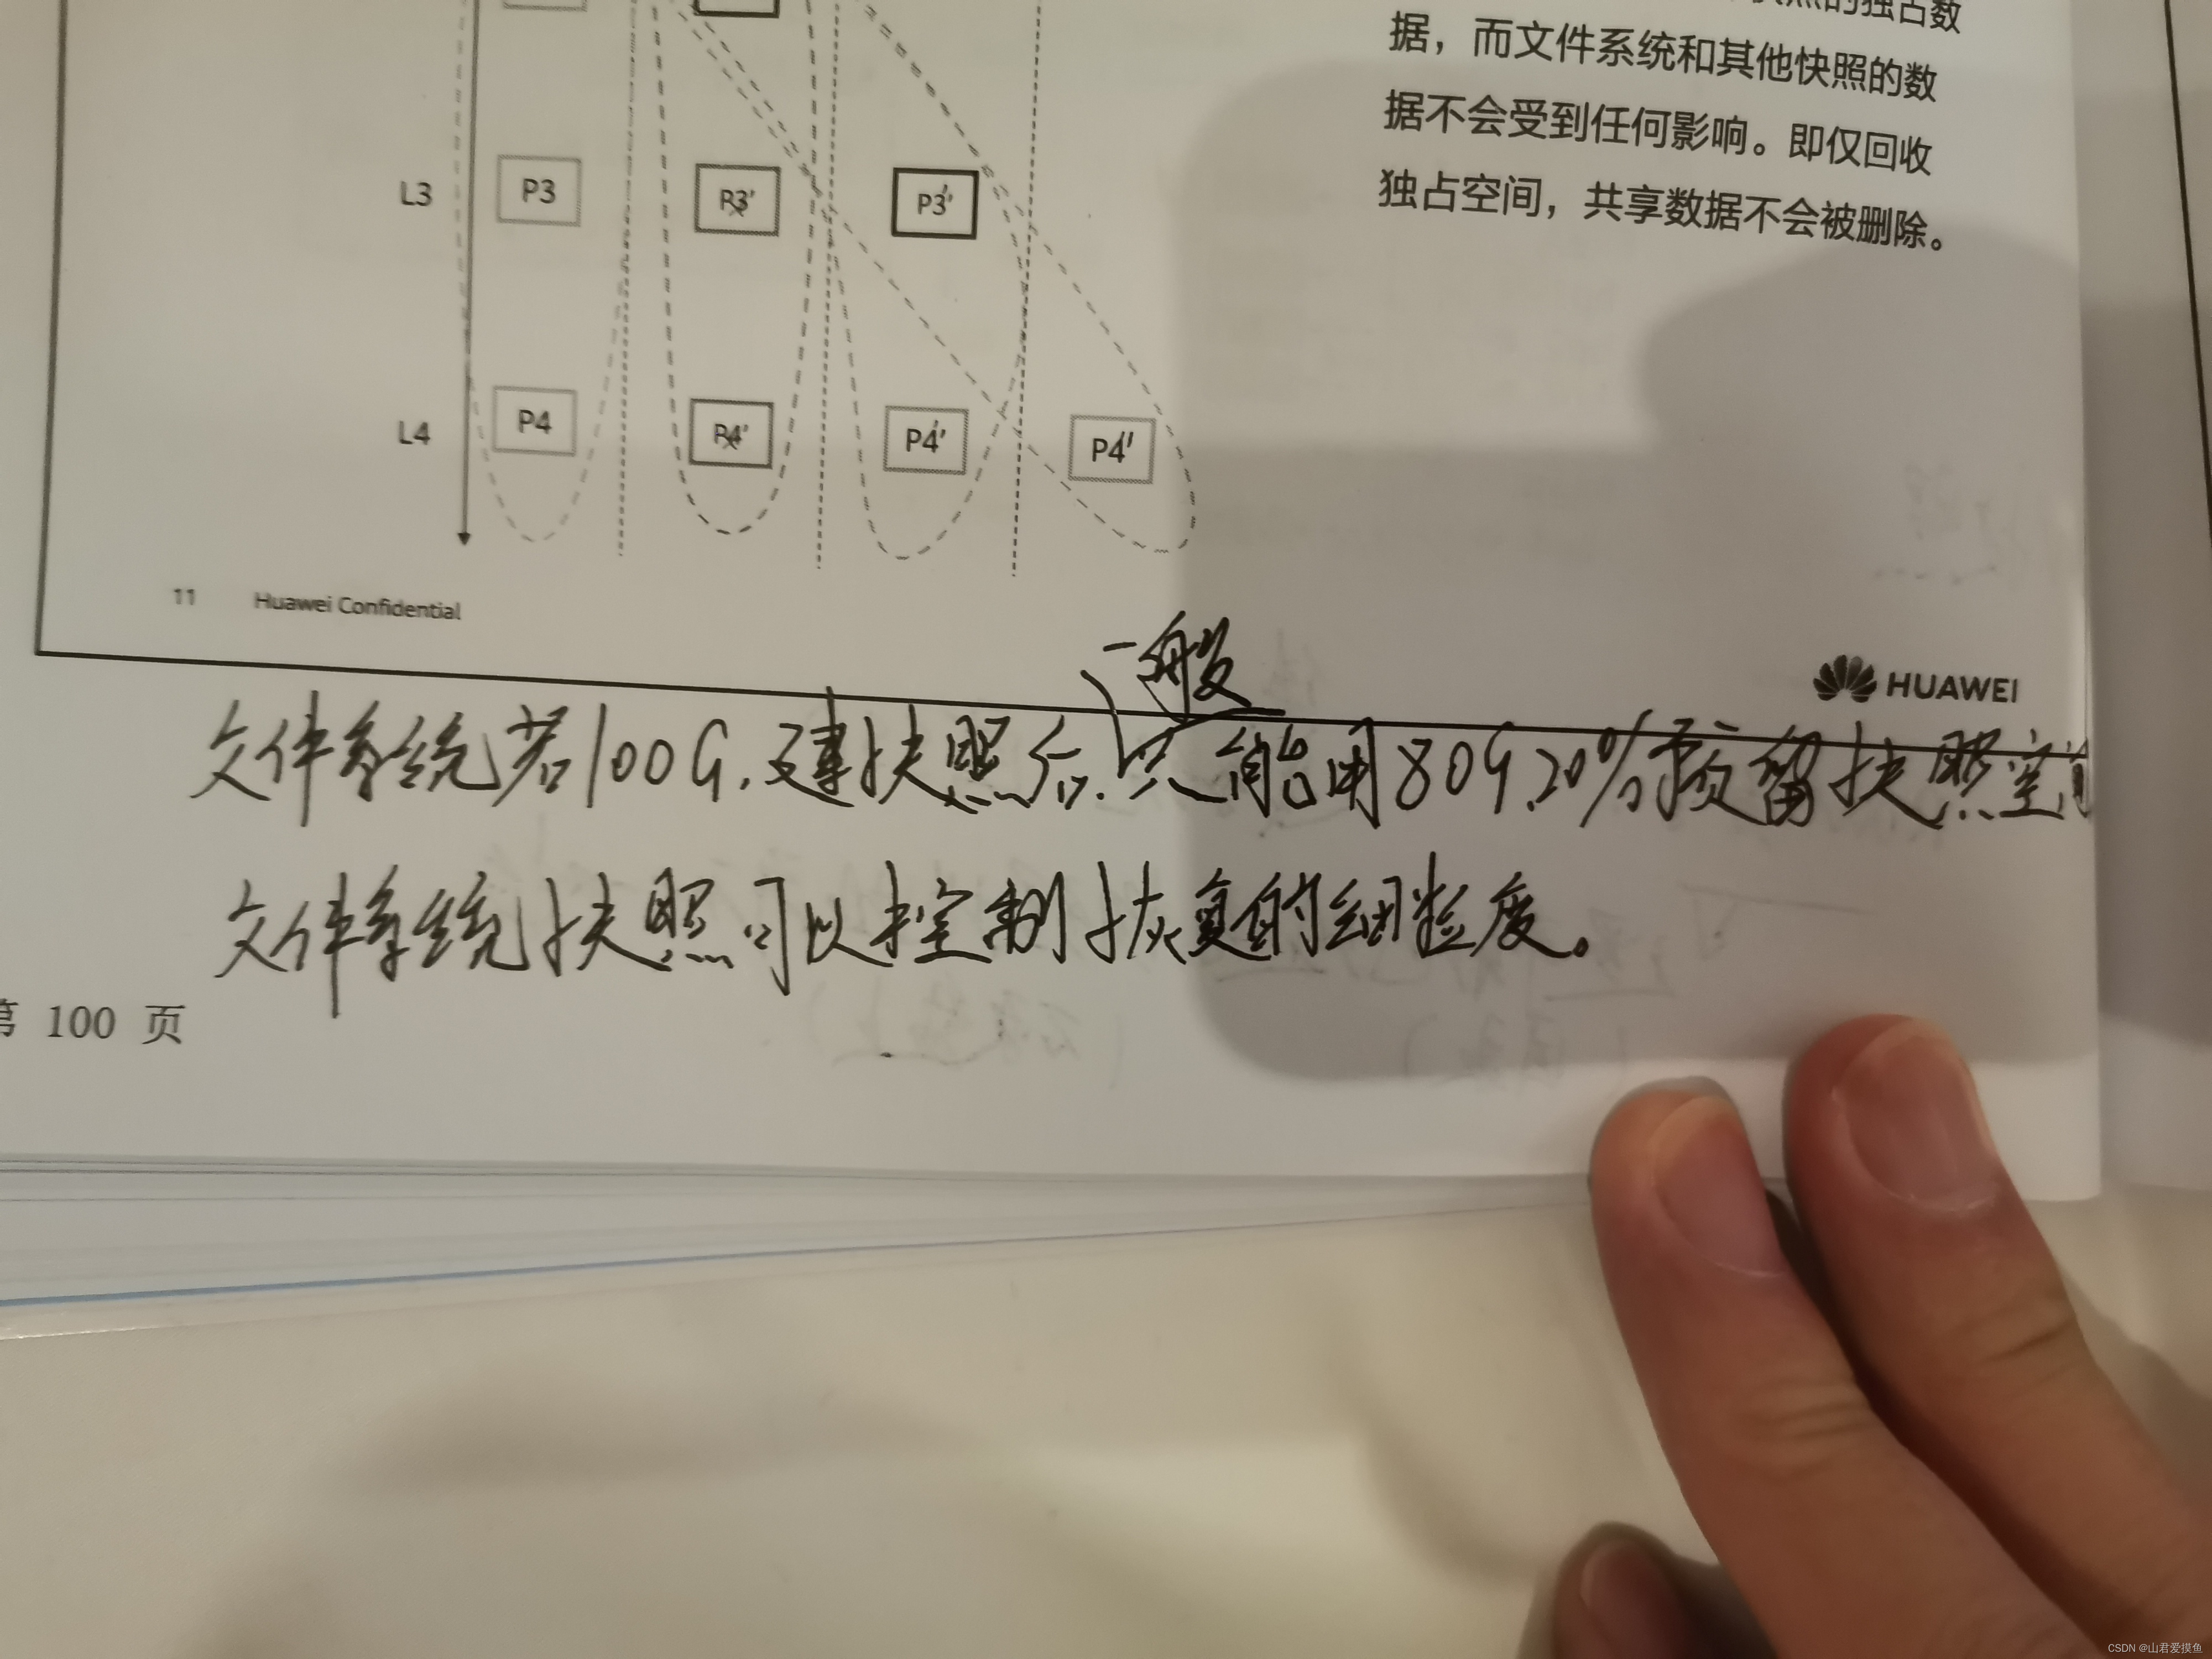 的独占数
据，而文件系统和其他快照的数
据不会受到任何影响。即仅回收
独占空间，共享数据不会被删除。
L3
P3
P3'
P3'
L4
P4
P4'
P4'
P4'
11 Huawei Confidential
HUAWEI
一般
文件系统若100G.建扶照后.只能用80G.20%预留扶照空间
文件系统扶照可以控制恢复的细粒度。
第 100 页
CSDN @山君爱摸鱼